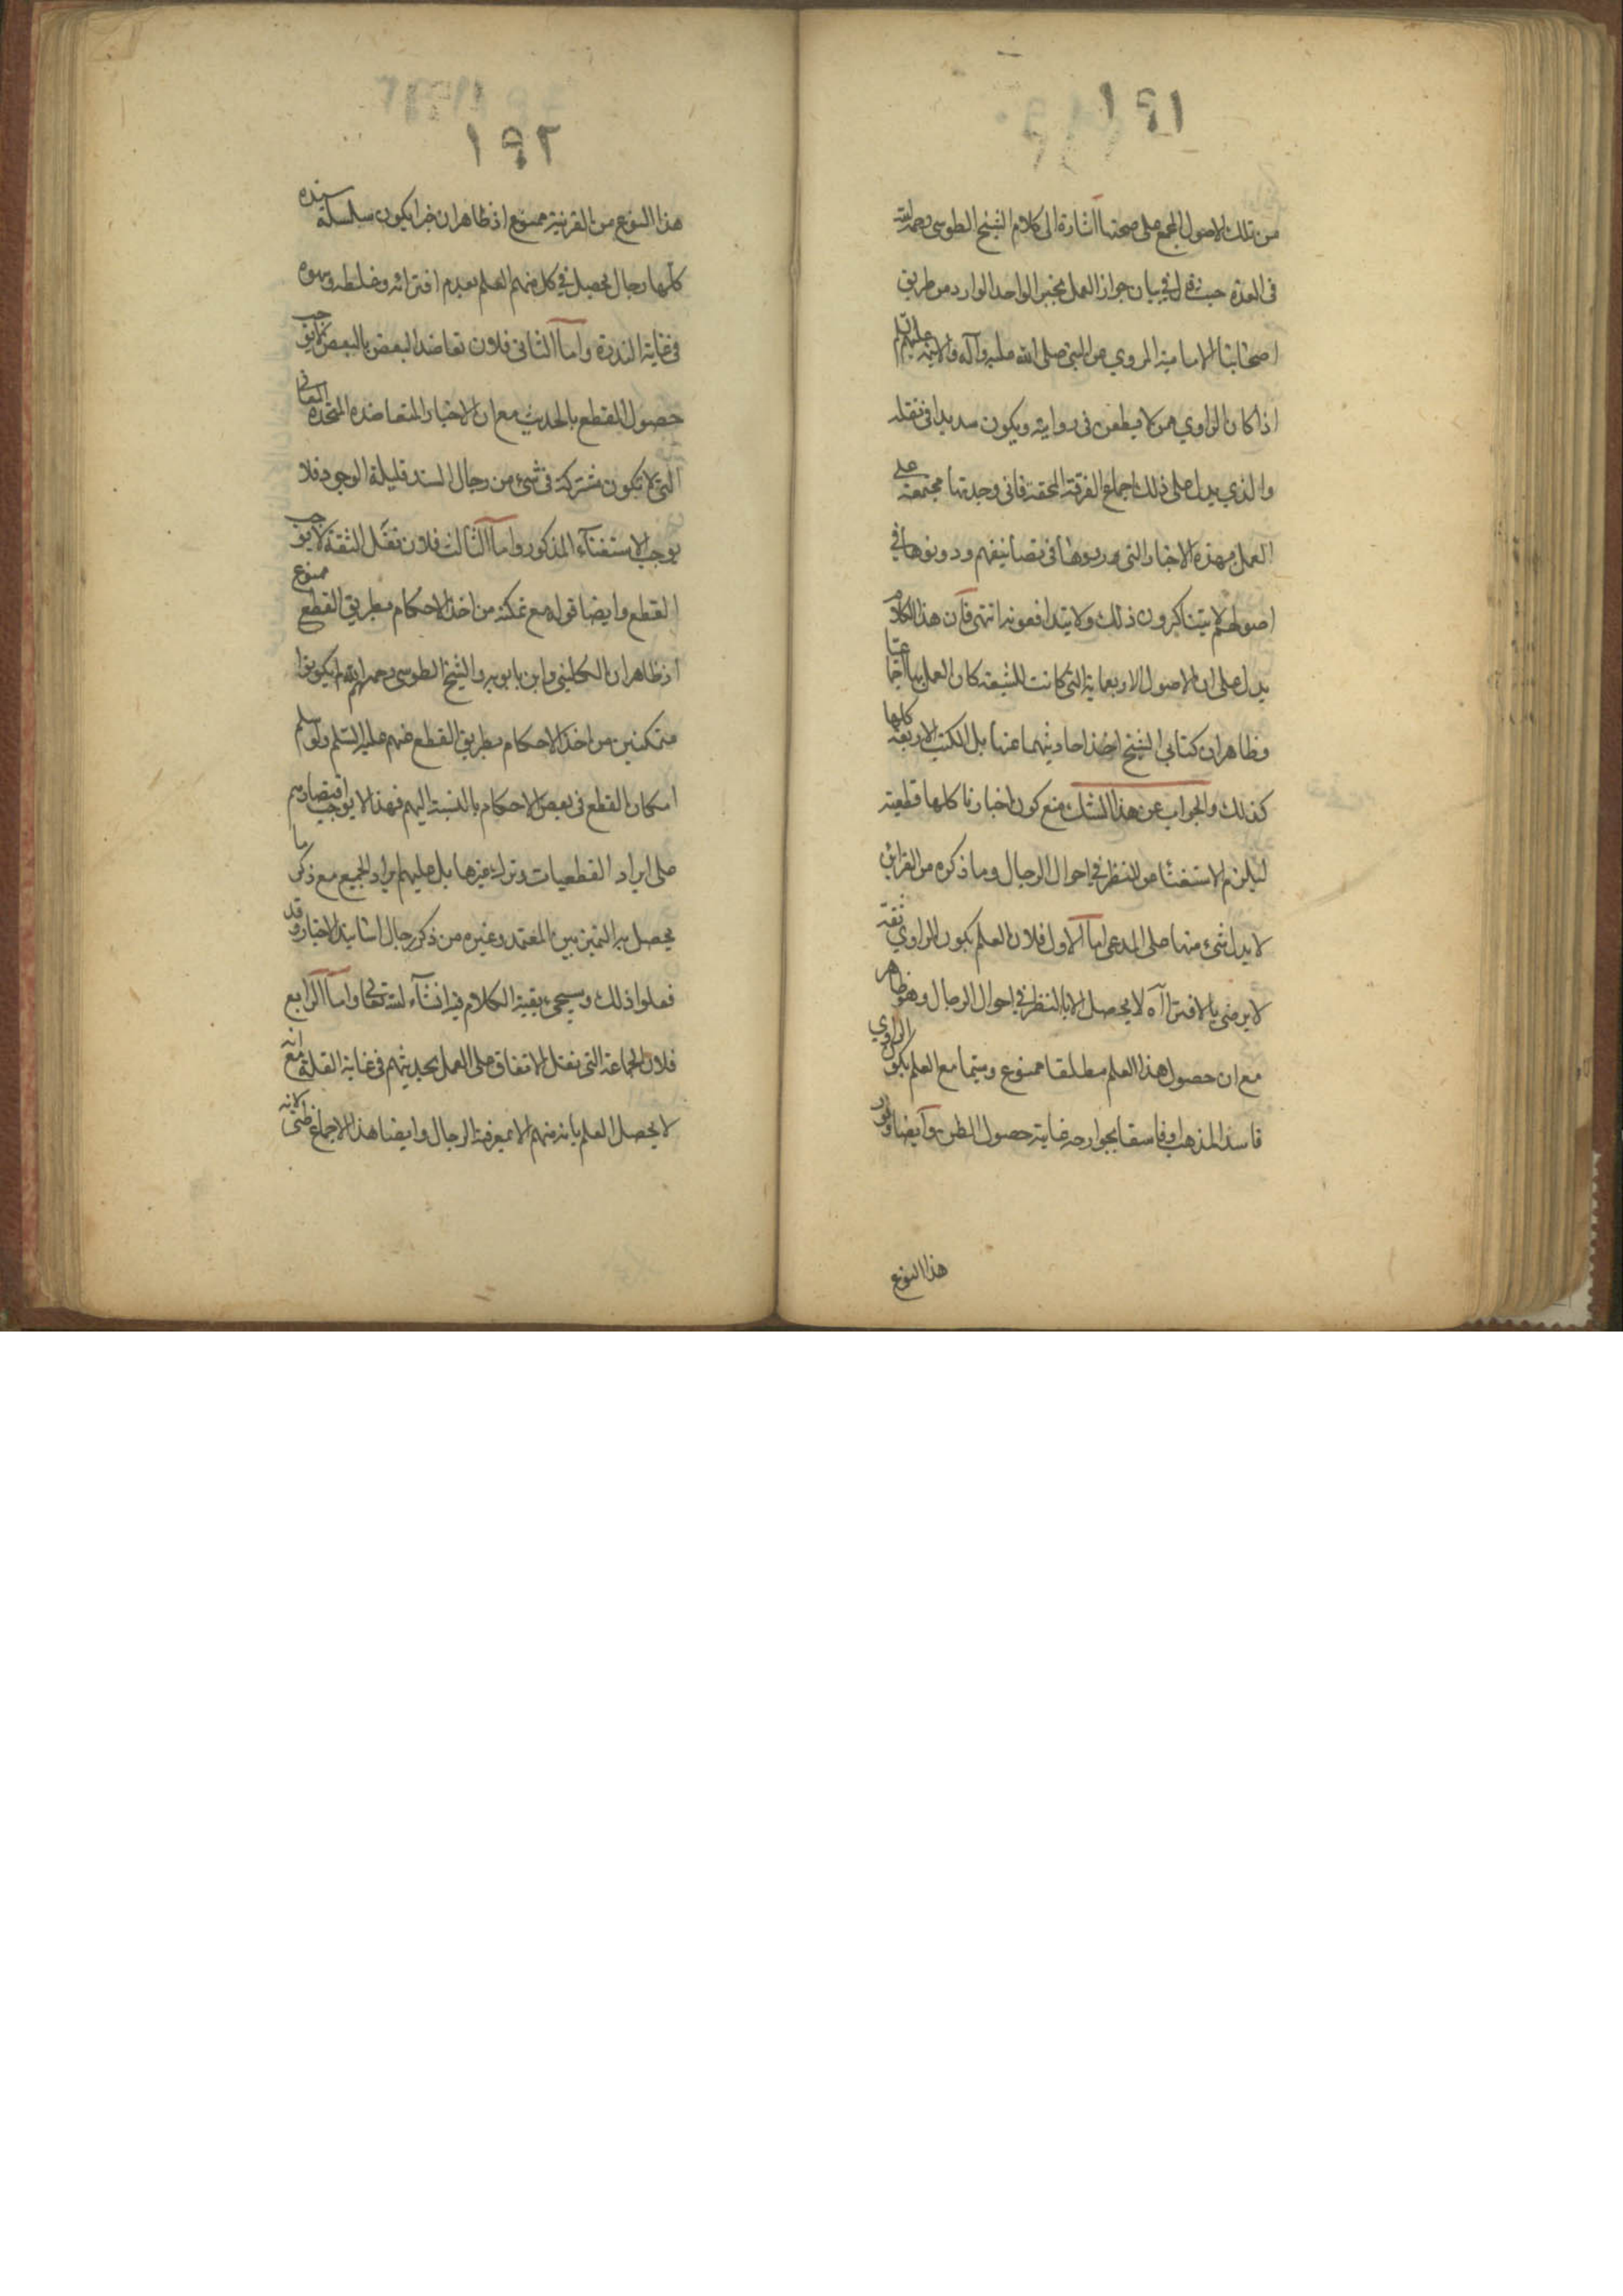 ١٩١
من تلك الاصول المجمع على صحتها اشارة الى كلام الشيخ الطوسى رحمه الله
فى العدة حيث قال فى بيان جواز العمل بخبر الواحد الوارد من طريق
اصحابنا الامامية المروي عن النبى صلى الله عليه وآله والائمة عليهم السلم
اذا كان الراوي ممن لا يطعن فى روايته ويكون سديدا فى نقله
والذي يدل على ذلك اجماع الفرقة المحقة فانى وجدتها مجتمعة على
العمل بهذه الاخبار التى رووها فى تصانيفهم ودونوها فى
اصولهم لا يتناكرون ذلك ولا يتدافعونه انتهى فان هذا الكلام
يدل على ان الاصول الاربعماية التى كانت للشيعة كان العمل بها اجماعيا
وظاهر ان كتابي الشيخ اخذ احاديثهما عنها بل الكتب الاربعة كلها
كذلك والجواب عن هذا الشك منع كون اخبارنا كلها قطعية
ليلزم الاستغناء عن النظر فى احوال الرجال وما ذكره من القراين
لا يدل شىء منها على المدعى اما الاول فلان العلم بكون الراوي ثقة
لا يرضى بالافترا آه لا يحصل الا بالنظر فى احوال الرجال وهو ظاهر
مع ان حصول هذا العلم مطلقا ممنوع وسيما مع العلم بكون الراوي
فاسد المذهب او فاسقا بجوارحه غاية حصول الظن وايضا وفور
هذا النوع
١٩٢
هذا النوع من القرينة ممنوع اذ ظاهر ان خبرا يكون سلسلة سنده
كلها رجال يحصل فى كل منهم العلم بعدم افترائه وغلطه وسهوه
فى غاية الندرة واما الثانى فلان تعاضد البعض بالبعض لا يوجب
حصول القطع بالحديث مع ان الاخبار المتعاضدة المتحدة المعانى
التى لا تكون مشتركة فى شىء من رجال السند قليلة الوجود فلا
يوجب الاستغناء المذكور واما الثالث فلان نقل الثقة لا يوجب
القطع وايضا قوله مع تمكنه من اخذ الاحكام بطريق القطع ممنوع
اذ ظاهر ان الكلينى وابن بابويه والشيخ الطوسى رحمهم الله لم يكونوا
متمكنين من اخذ الاحكام بطريق القطع عنهم عليهم السلم ولو سلم
امكان القطع فى بعض الاحكام بالنسبة اليهم فهذا لا يوجب اقتصارهم
على ايراد القطعيات وترك غيرها بل عليهم ايراد الجميع مع ذكر ما
يحصل به التميز بين المعتمد وغيره من ذكر رجال اسانيد الاخبار وقد
فعلوا ذلك وسيجىء بقية الكلام فيه انشآء الله تعالى واما الرابع
فلان الجماعة التى نقل الاتفاق على العمل بحديثهم فى غاية القلة مع انه
لا يحصل العلم بانه منهم الا بمعرفة الرجال وايضا هذا الاجماع ظنى لانه